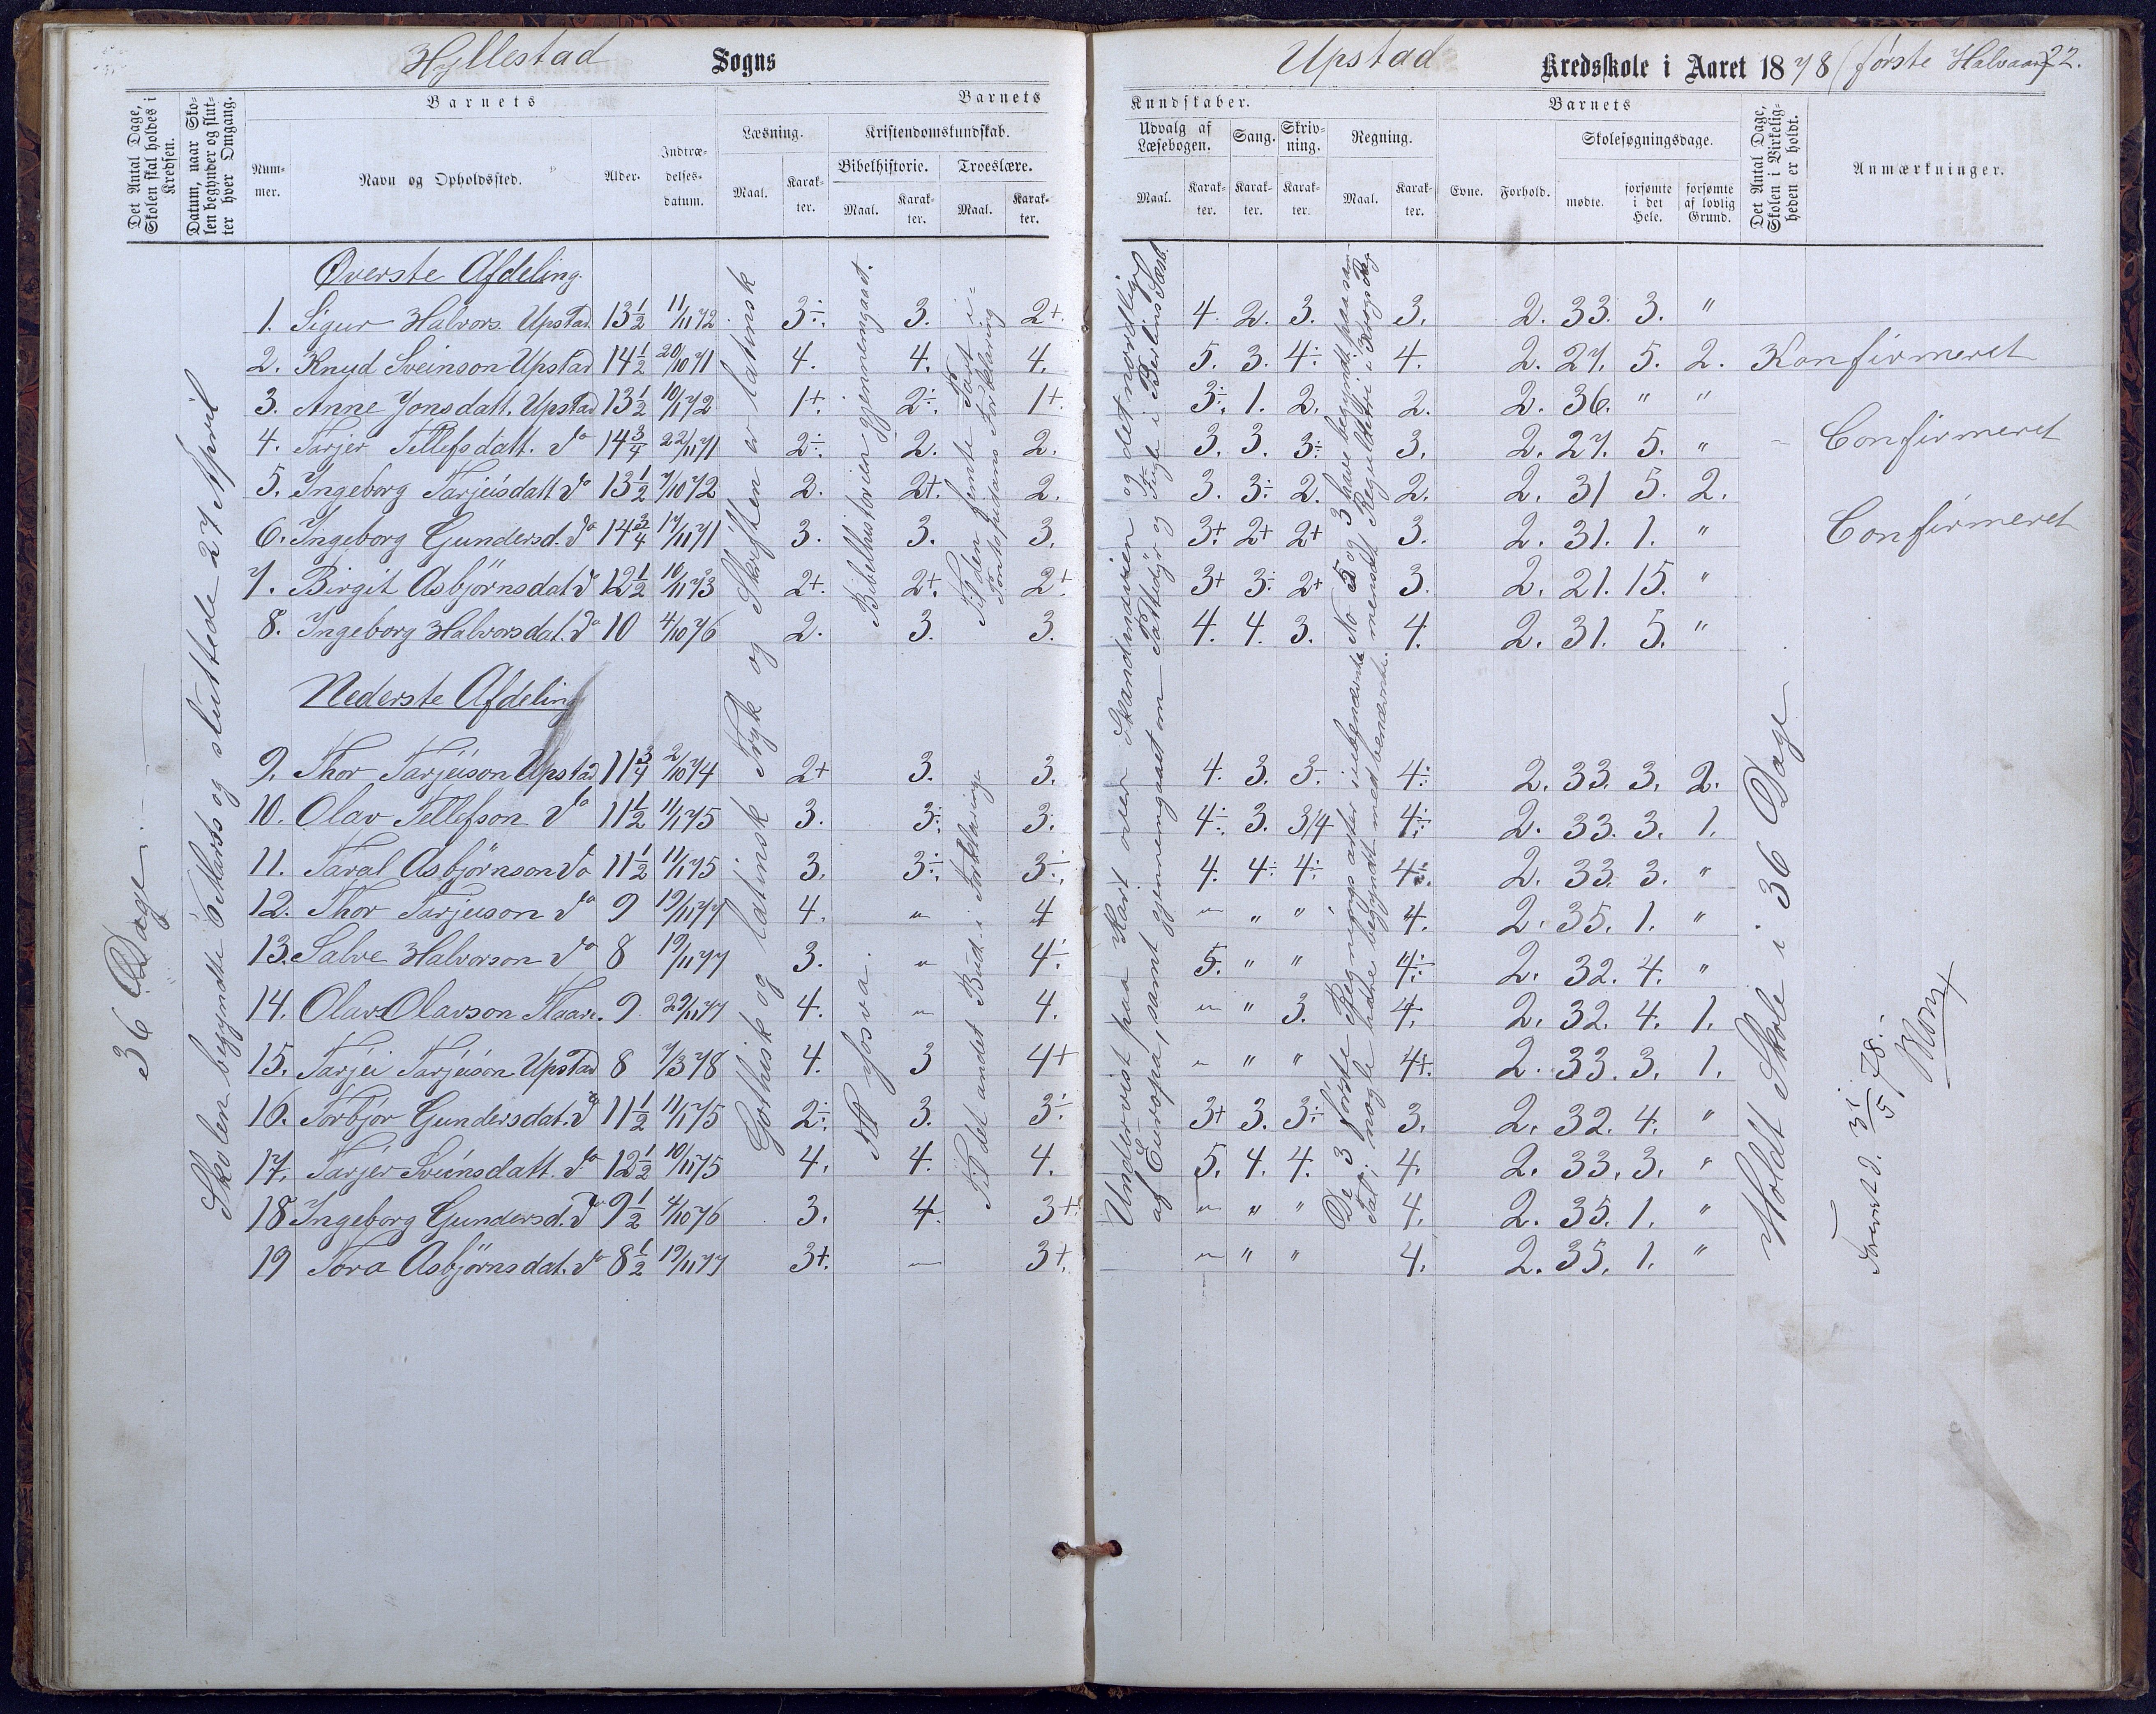 Hyllestad Sogns
Upstad Kredsskole i Aaret 1878 (første Halvaar) 22.
Det Antal Dage, Skolen skal holdes i Kredsen.
Datum, naar Skolen begynder og slutter hver Omgang.
Barnets
Nummer.
Navn og Opholdssted.
Alder.
Indtrædelsesdatum.
Barnets
Læsning.
Maal.
Karakter.
Kristendomskundskab.
Bibelhistorie.
Maal.
Karakter.
Troeslære.
Maal.
Karakter.
Kundskaber.
Udvalg af Læsebogen.
Maal.
Karakter.
Sang.
Karakter.
Skrivning.
Karakter.
Regning.
Maal.
Karakter.
Barnets
Evne.
Forhold.
Skolesøgningsdage.
mødte.
forsømte i det Hele.
forsømte af lovlig Grund.
Det Antal Dage, Skolen i Virkeligheden er holdt.
Anmærkninger.
36 Dage.
Skolen begyndte 6 Marts og sluttede 27 April
Øverste Afdeling.
1. Sigur Halvors. Upstad. 13½ 11/11 72. 3÷. 3. 2+. 4. 2. 3. 3. 2. 33. 3. "
2. Knud Sveinson Upstad 14½ 20/10 71 4. 4. 4. 5. 3. 4÷ 4. 2. 27. 5. 2. Konfirmeret
3. Anne Jonsdatt. Upstad 13½ 10/1 72 1+. 2÷. 1+. 3÷. 1. 2. 2. 2. 36. " "
4. Tarjer Tellefsdatt. do 14¾ 22/11 71 2÷. 2. 2. 3. 3. 3÷ 3. 2. 27. 5. " - Confirmeret
5. Ingeborg Tarjeisdatt do 13½ 7/10 72 2. 2+. 2. 3. 3÷ 2. 2. 2. 31 5. 2.
6. Ingeborg Gundersd. do 14¾ 17/11 71 3. 3. 3. 3+. 2+ 2+ 3. 2. 31. 1. " Confirmeret
7. Birgit Asbjörnsdat do 12½ 10/11 73 2+. 2+. 2+. 3+ 3÷ 2+ 3. 2. 21. 15. "
8. Ingeborg Halvorsdat. do 10 4/10 76 2. 3. 3. 4. 4. 3. 4. 2. 31. 5. "
Nederste Afdeling
9. Thor Tarjeison Upstad 11¾ 2/10 74 2+ 3. 3. 4. 3. 3÷ 4÷ 2. 33. 3. 2.
10. Olav Tellefson do 11½ 11/1 75 3. 3÷. 3. 4÷. 3. 3/4 4÷ 2. 33. 3. 1.
11. Taral Asbjörnson do 11½ 11/1 75 3. 3÷. 3÷. 4. 4÷ 4÷ 4÷. 2. 33. 3. "
12. Thor Tarjeison do 9 19/11 77 4. " 4 " " " 4. 2. 35. 1. "
13. Salve Halvorson do 8 19/11 77 3. " 4÷. 5. " " 4÷ 2. 32. 4. "
14. Olav Olavson 9. 29/11 77 4. " 4. " " 3. 4. 2. 32. 4. 1.
15. Tarjei Tarjeison Upstad 8 7/3 78 4. 3 4+ " " " 4+. 2. 33. 3. 1.
16. Torbjör Gundersdat. do 11½ 11/1 75 2÷. 3. 3÷ 3+ 3. 3÷ 3. 2. 32. 4. "
17. Tarjer Sveinsdatt. do 12½ 10/11 75 4. 4. 4. 5. 4. 4. 4. 2. 33. 3. "
18 Ingeborg Gundersd. do 9½ 4/10 76 3. 4. 3+. " " " 4. 2. 35. 1. "
19 Tora Asbjörnsdat. do 8½ 19/11 77 3+. " 3+. " " " 4. 2. 35. 1. "
Gothisk og latinsk Tryk og Skriften er latinsk
Bibelhistorien gjennemgaaet.
Til Josva.
Til den femte Part i Pontoppidans Forklaring
Til det andet Bud i Forklaringe
Undervist paa Kart over Skandinavien og det nordlige
af Europa, samt gjennemgaaet om Pattedyr og Fugle i
De 3 første Regnings arter i ubenævnte No 5 og 3 have begyndt paa
Tal, nogle have begyndt med benævnte.
Holdt Skole i 36 Dage
31/5 78.